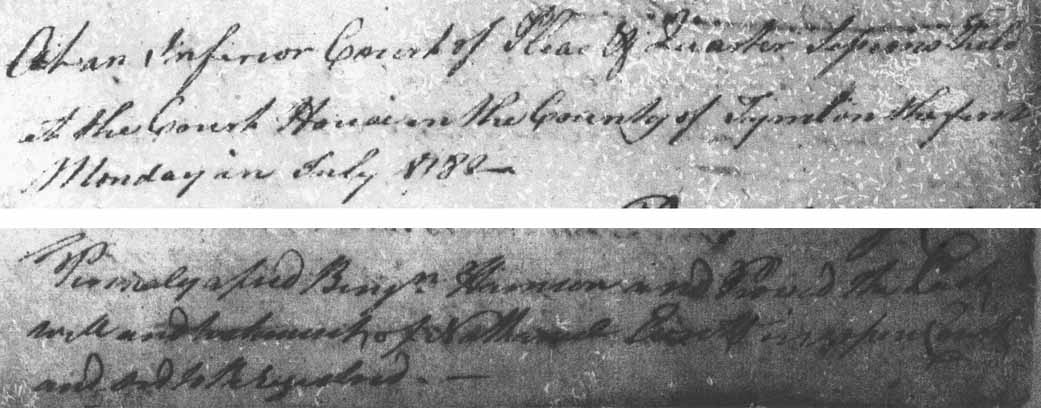 At an Inferior Court of Pleas & Quarter Sessions Held
at the Court House in the County of Tyrrell on the first
Monday in July 1782
Personaly apierd Benjn and Proved the Last
will and testament of Nathan in oppen Court
and ord to be Registred. —